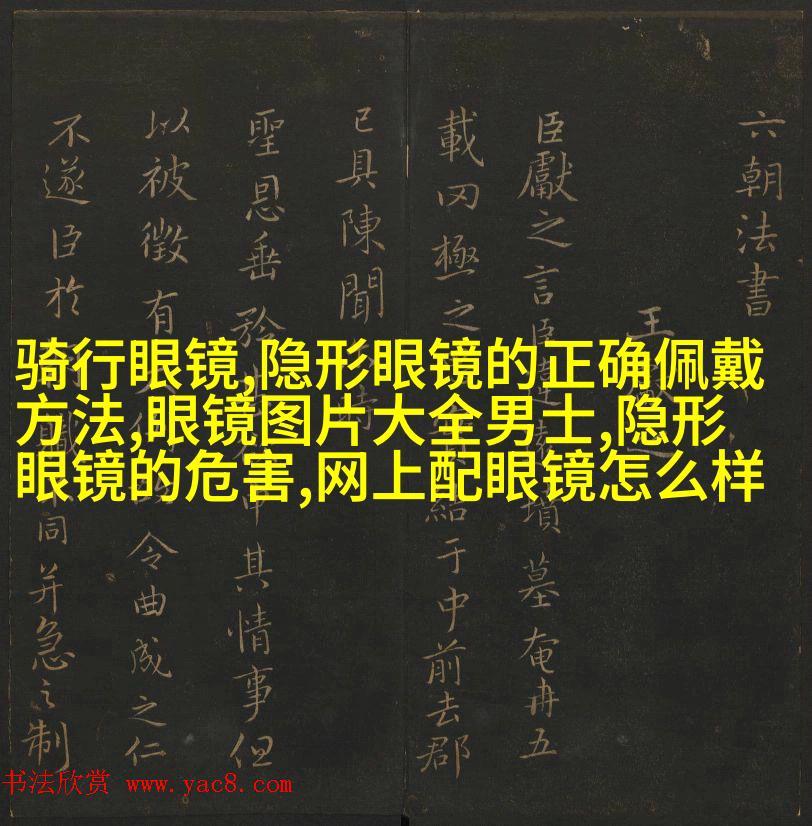 六朝法書
王
臣獻之言臣墳墓奄冉五
載罔極之于中前去郡
已具陳聞
聖恩垂矜其情事但
以被徵有令曲成之仁
不遂臣於同并急之制
骑行眼镜,隐形眼镜的正确佩戴
方法,眼镜图片大全男士,隐形
眼镜的危害,网上配眼镜怎么样
书法欣赏 www.yac8.com